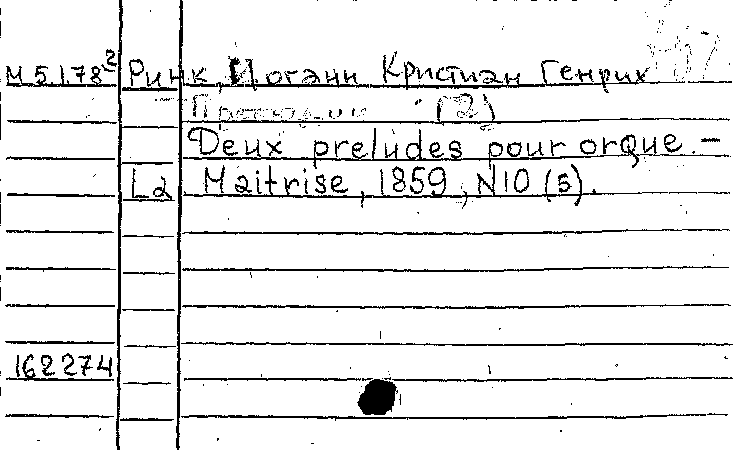 М 5.178² Ринк, Иоганн Кристиан Генрих
Прелюдии (2)
Deux preludes pour orque. –
La Maitrise, 1859, N10 (5).
162274